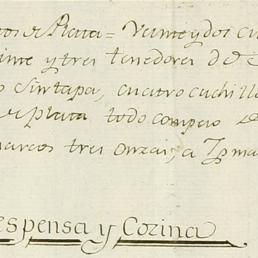 de Plata = Veinte y dos cu
inte y tres tenedores de
Sin tapa, cuatro cuchill
de plata todo con peso de
marcos tres onzas, a
espensa y Cozina